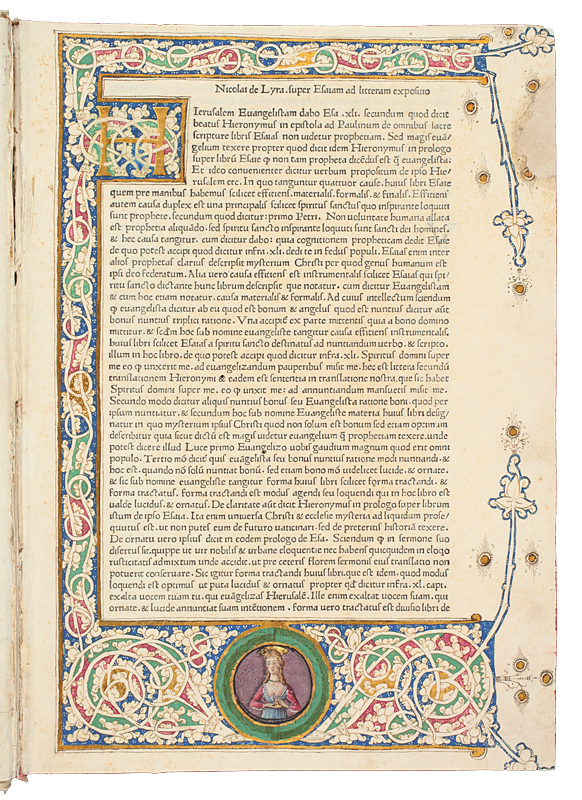 Nicolai de Lyra. super Esaiam ad litteram expositio
H
Ierusalem Euangelistam dabo Esa .xli. secundum quod dicit
beatus Hieronymus in epistola ad Paulinum de omnibus sacre
scripture libris Esaias non uidetur prophetiam. Sed magis euā/
gelium texere propter quod dicit idem Hieronymus in prologo
super librū Esaie ꝙ non tam propheta dicēdus est q̄ euangelista.
Et ideo conuenienter dicitur uerbum propositum de ipso Hie/
rusalem etc. In quo tanguntur quattuor cause. huius libri Esaie
quem pre manibus habemus scilicet efficiens. materialis. formalis. & finalis. Efficiens
autem causa duplex est una principalis scilicet spiritus sanctus quo inspirante loquuti
sunt prophete. secundum quod dicitur: primo Petri. Non uoluntate humana allata
est prophetia aliquādo. sed spiritu sancto inspirante loquuti sunt sancti dei homines.
& hec causa tangitur. cum dicitur dabo: quia cognitionem propheticam dedit Esaie
de quo potest accipi quod dicitur infra .xli. dedi te in fedus populi. Esaias enim inter
alios prophetas clarius descripsit mysterium Christi per quod genus humanum est
ipsi deo federatum. Alia uero causa efficiens est instrumentalis scilicet Esaias qui spi/
ritu sancto dictante hunc librum descripsit que notatur. cum dicitur Euangelistam
& cum hoc etiam notatur. causa materialis & formalis. Ad cuius intellectum sciendum
ꝙ euangelista dicitur ab eu quod est bonum & angelus quod est nuntius dicitur aūt
bonus nuntius triplici ratione. Vna accipit̄ ex parte mittentis quia a bono domino
mittitur. & scd̄m hoc sub nomine euangeliste tangitur causa efficiens instrumentalis.
huius libri scilicet Esaias a spiritu sancto destinatus ad nuntiandum uerbo. & scripto.
illum in hoc libro. de quo potest accipi quod dicitur infra .xli. Spiritus domini super
me eo ꝙ unxerit me. ad euangelizandum pauperibus misit me. hec est littera secundū
translationem Hieronymi & eadem est sententia in translatione nostra. que sic habet
Spiritus domini super me. eo ꝙ unxit me: ad annuntiandum mansuetis misit me.
Secundo modo dicitur aliquis nuntius bonus seu Euangelista ratione boni. quod per
ipsum nuntiatur. & secundum hoc sub nomine Euangeliste materia huius libri desig/
natur in quo mysterium ipsius Christi quod non solum est bonum sed etiam optimum
describitur quia sicut dictū est magis uidetur euangelium q̄ prophetiam texere. unde
potest dicere illud Luce primo Euangelizo uobis gaudium magnum quod erit omni
populo. Tertio mō dicit̄ quis euāgelista seu bonus nuntius ratione modi nuntiandi. &
hoc est. quando nō solū nuntiat bonū. sed etiam bono mō uidelicet lucide. & ornate.
& sic sub nomine euangeliste tangitur forma huius libri scilicet forma tractandi. &
forma tractatus. forma tractandi est modus agendi seu loquendi qui in hoc libro est
ualde lucidus & ornatus. De claritate aūt dicit Hieronymus in prologo super librum
istum de ipso Esaia. Ita enim uniuersa Christi & ecclesie mysteria ad liquidum prose/
quutus est. ut non putes eum de futuro uaticinari. sed de preteritis historiā texere.
De ornatu uero ipsius dicit in eodem prologo de Esa. Sciendum ꝙ in sermone suo
disertus sit. quippe ut uir nobilis & urbane eloquentie nec habens quicquidem in eloqo
rusticitatis admixtum unde accidit. ut pre ceteris florem sermonis eius translatio non
potuerit conseruare. Sic igitur forma tractandi huius libri. que est idem. quod modus
loquendi est optimus ut puta lucidus & ornatus propter qd̄ dicitur infra .xl. capi.
exalta uocem tuam tu. qui euāgelizas Hierusalē. Ille enim exaltat uocem suam. qui
ornate. & lucide annuntiat suam intētionem . forma uero tractatus est diuisio libri de